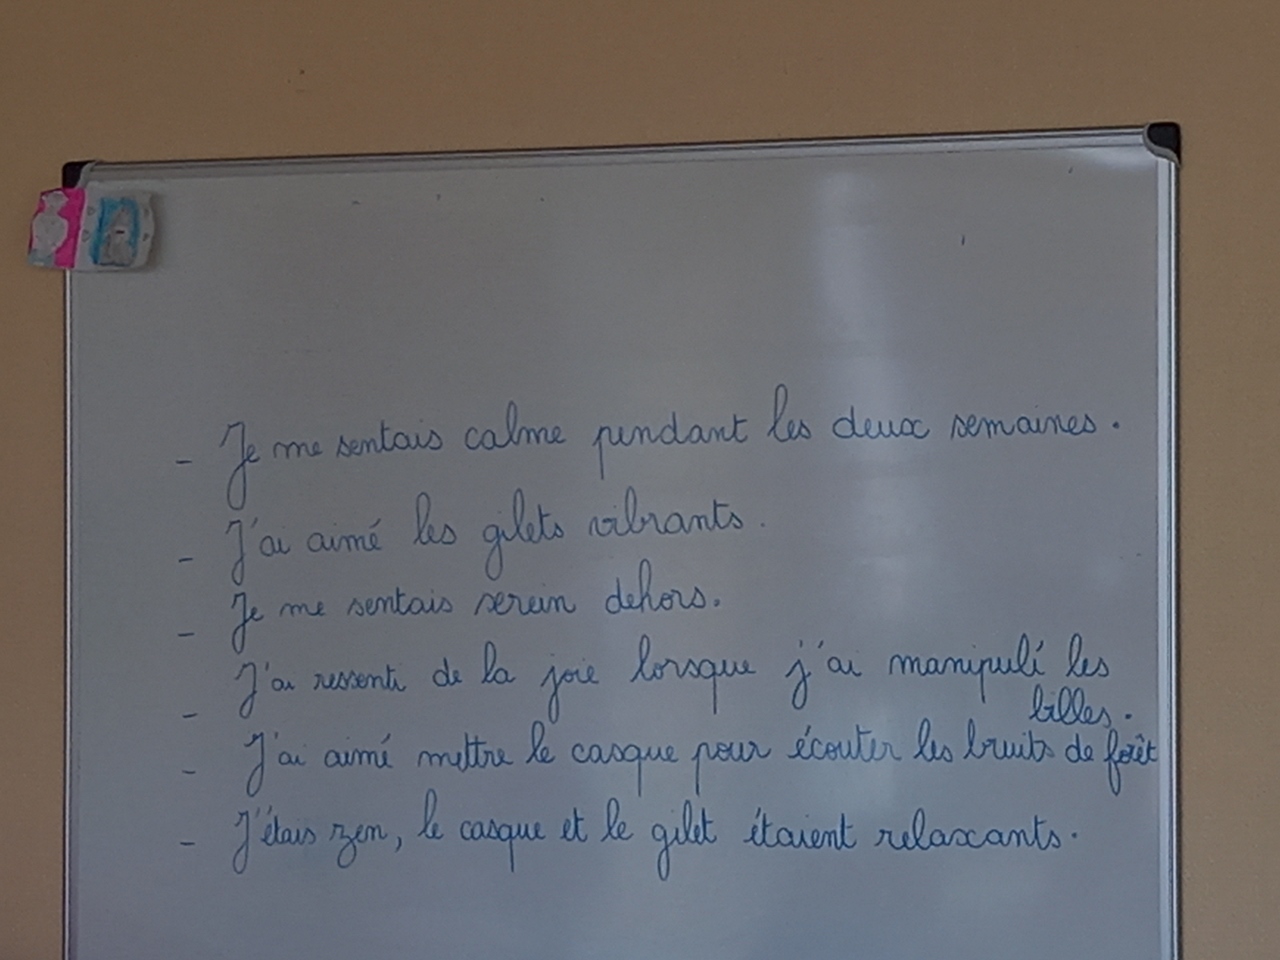 - Je me sentais calme pendant les deux semaines.
- J'ai aimé les gilets vibrants.
- Je me sentais serein dehors.
- J'ai ressenti de la joie lorsque j'ai manipulé les
billes.
- J'ai aimé mettre le casque pour écouter les bruits de forêt
- J'étais zen, le casque et le gilet étaient relaxants.